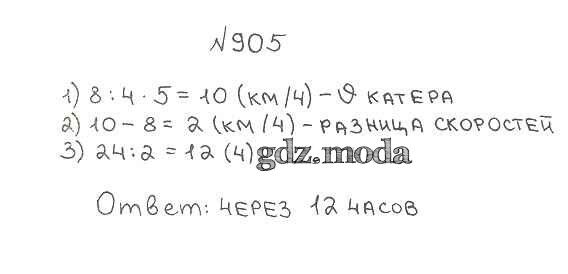 №905
1) 8 : 4 · 5 = 10 (км/ч) – υ катера
2) 10 – 8 = 2 (км/ч) – разница скоростей
3) 24 : 2 = 12 (ч) gdz.moda
Ответ: через 12 часов